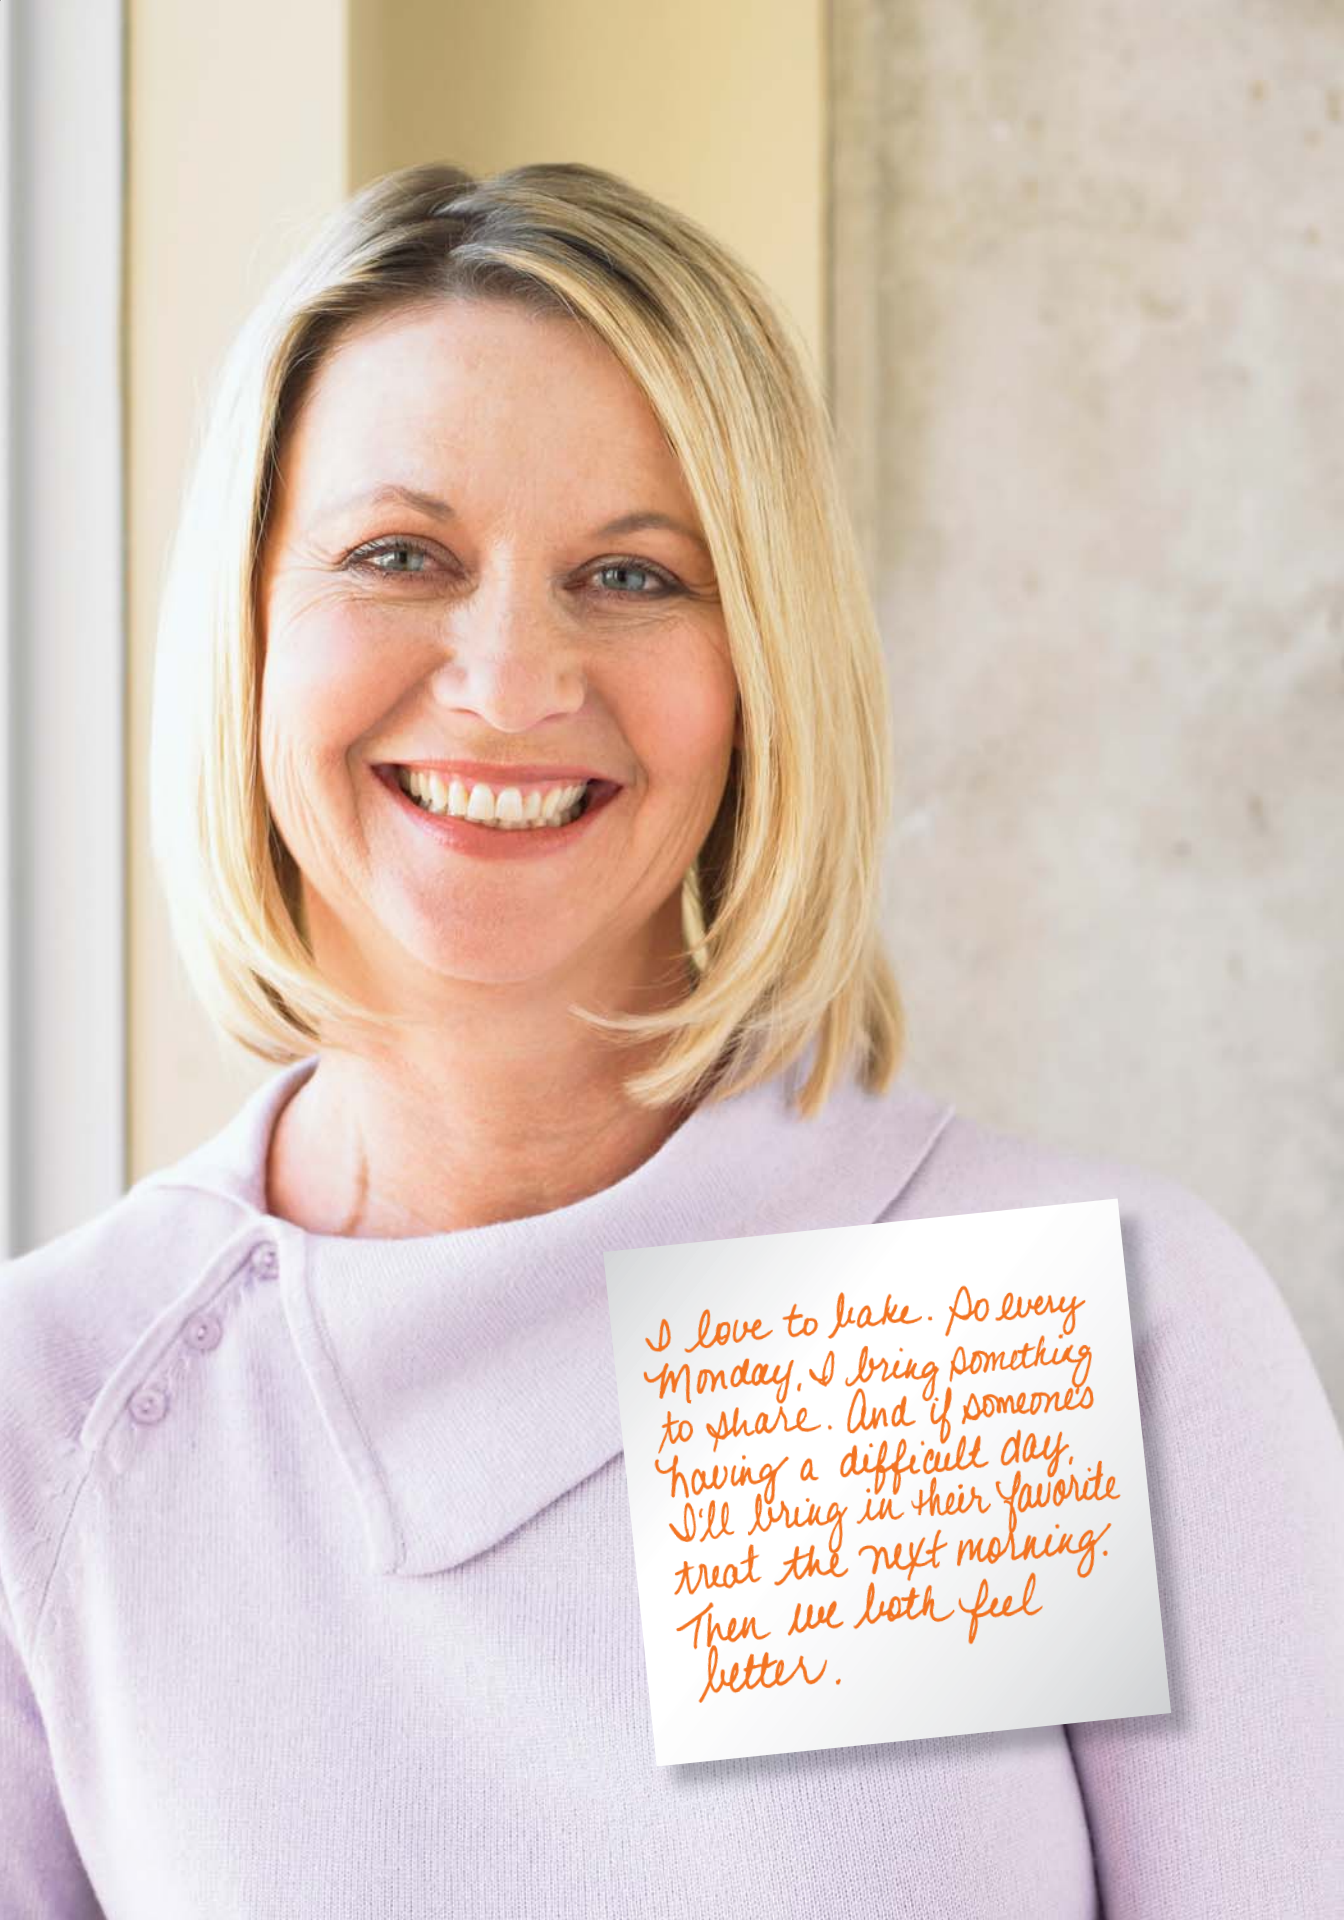 I love to bake. So every
Monday, I bring something
to share. And if someone's
having a difficult day,
I'll bring in their favorite
treat the next morning.
Then we both feel
better.